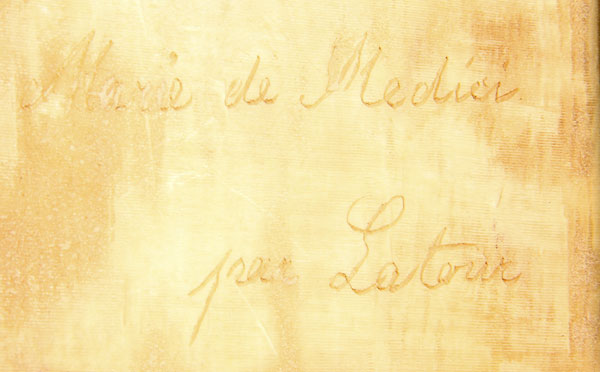 Marie de Medici
par Latour